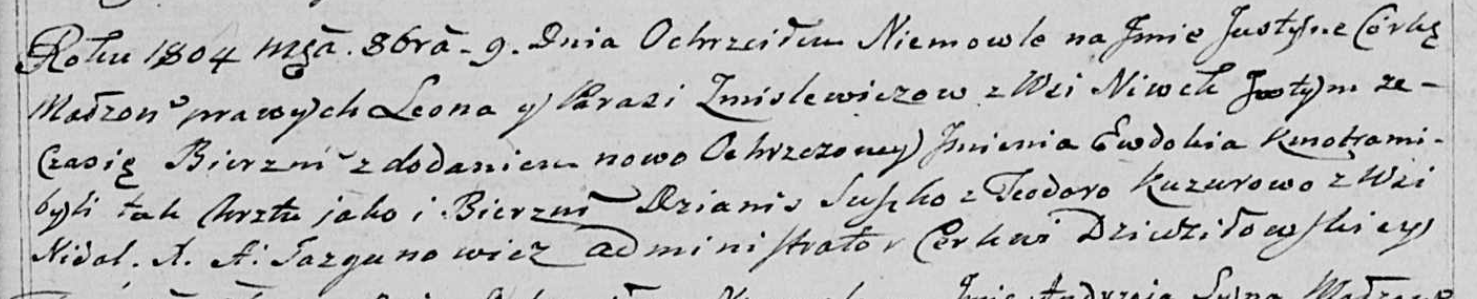 Roku 1804 mgā. 8brā. 9. Dnia Ochrzciłem Niemowle na Jmie Justyne Córkę
Małżon prawych Leona y Parasi Zmislewiczow z Wsi Niwek Jżtym że-
Czasię Bierzm z dodaniem nowo Ochrzczoney Jmienia Ewdokia Kmotrami-
byli tak Krztu jako i Bierzm Dzianis Suszko z Teodoro Kuzurowo z Wsi
Nidal. X. A: Jazgunowicz administrator Cerkwi Dziedziłowskiey
Jmie Andrzeja Syna